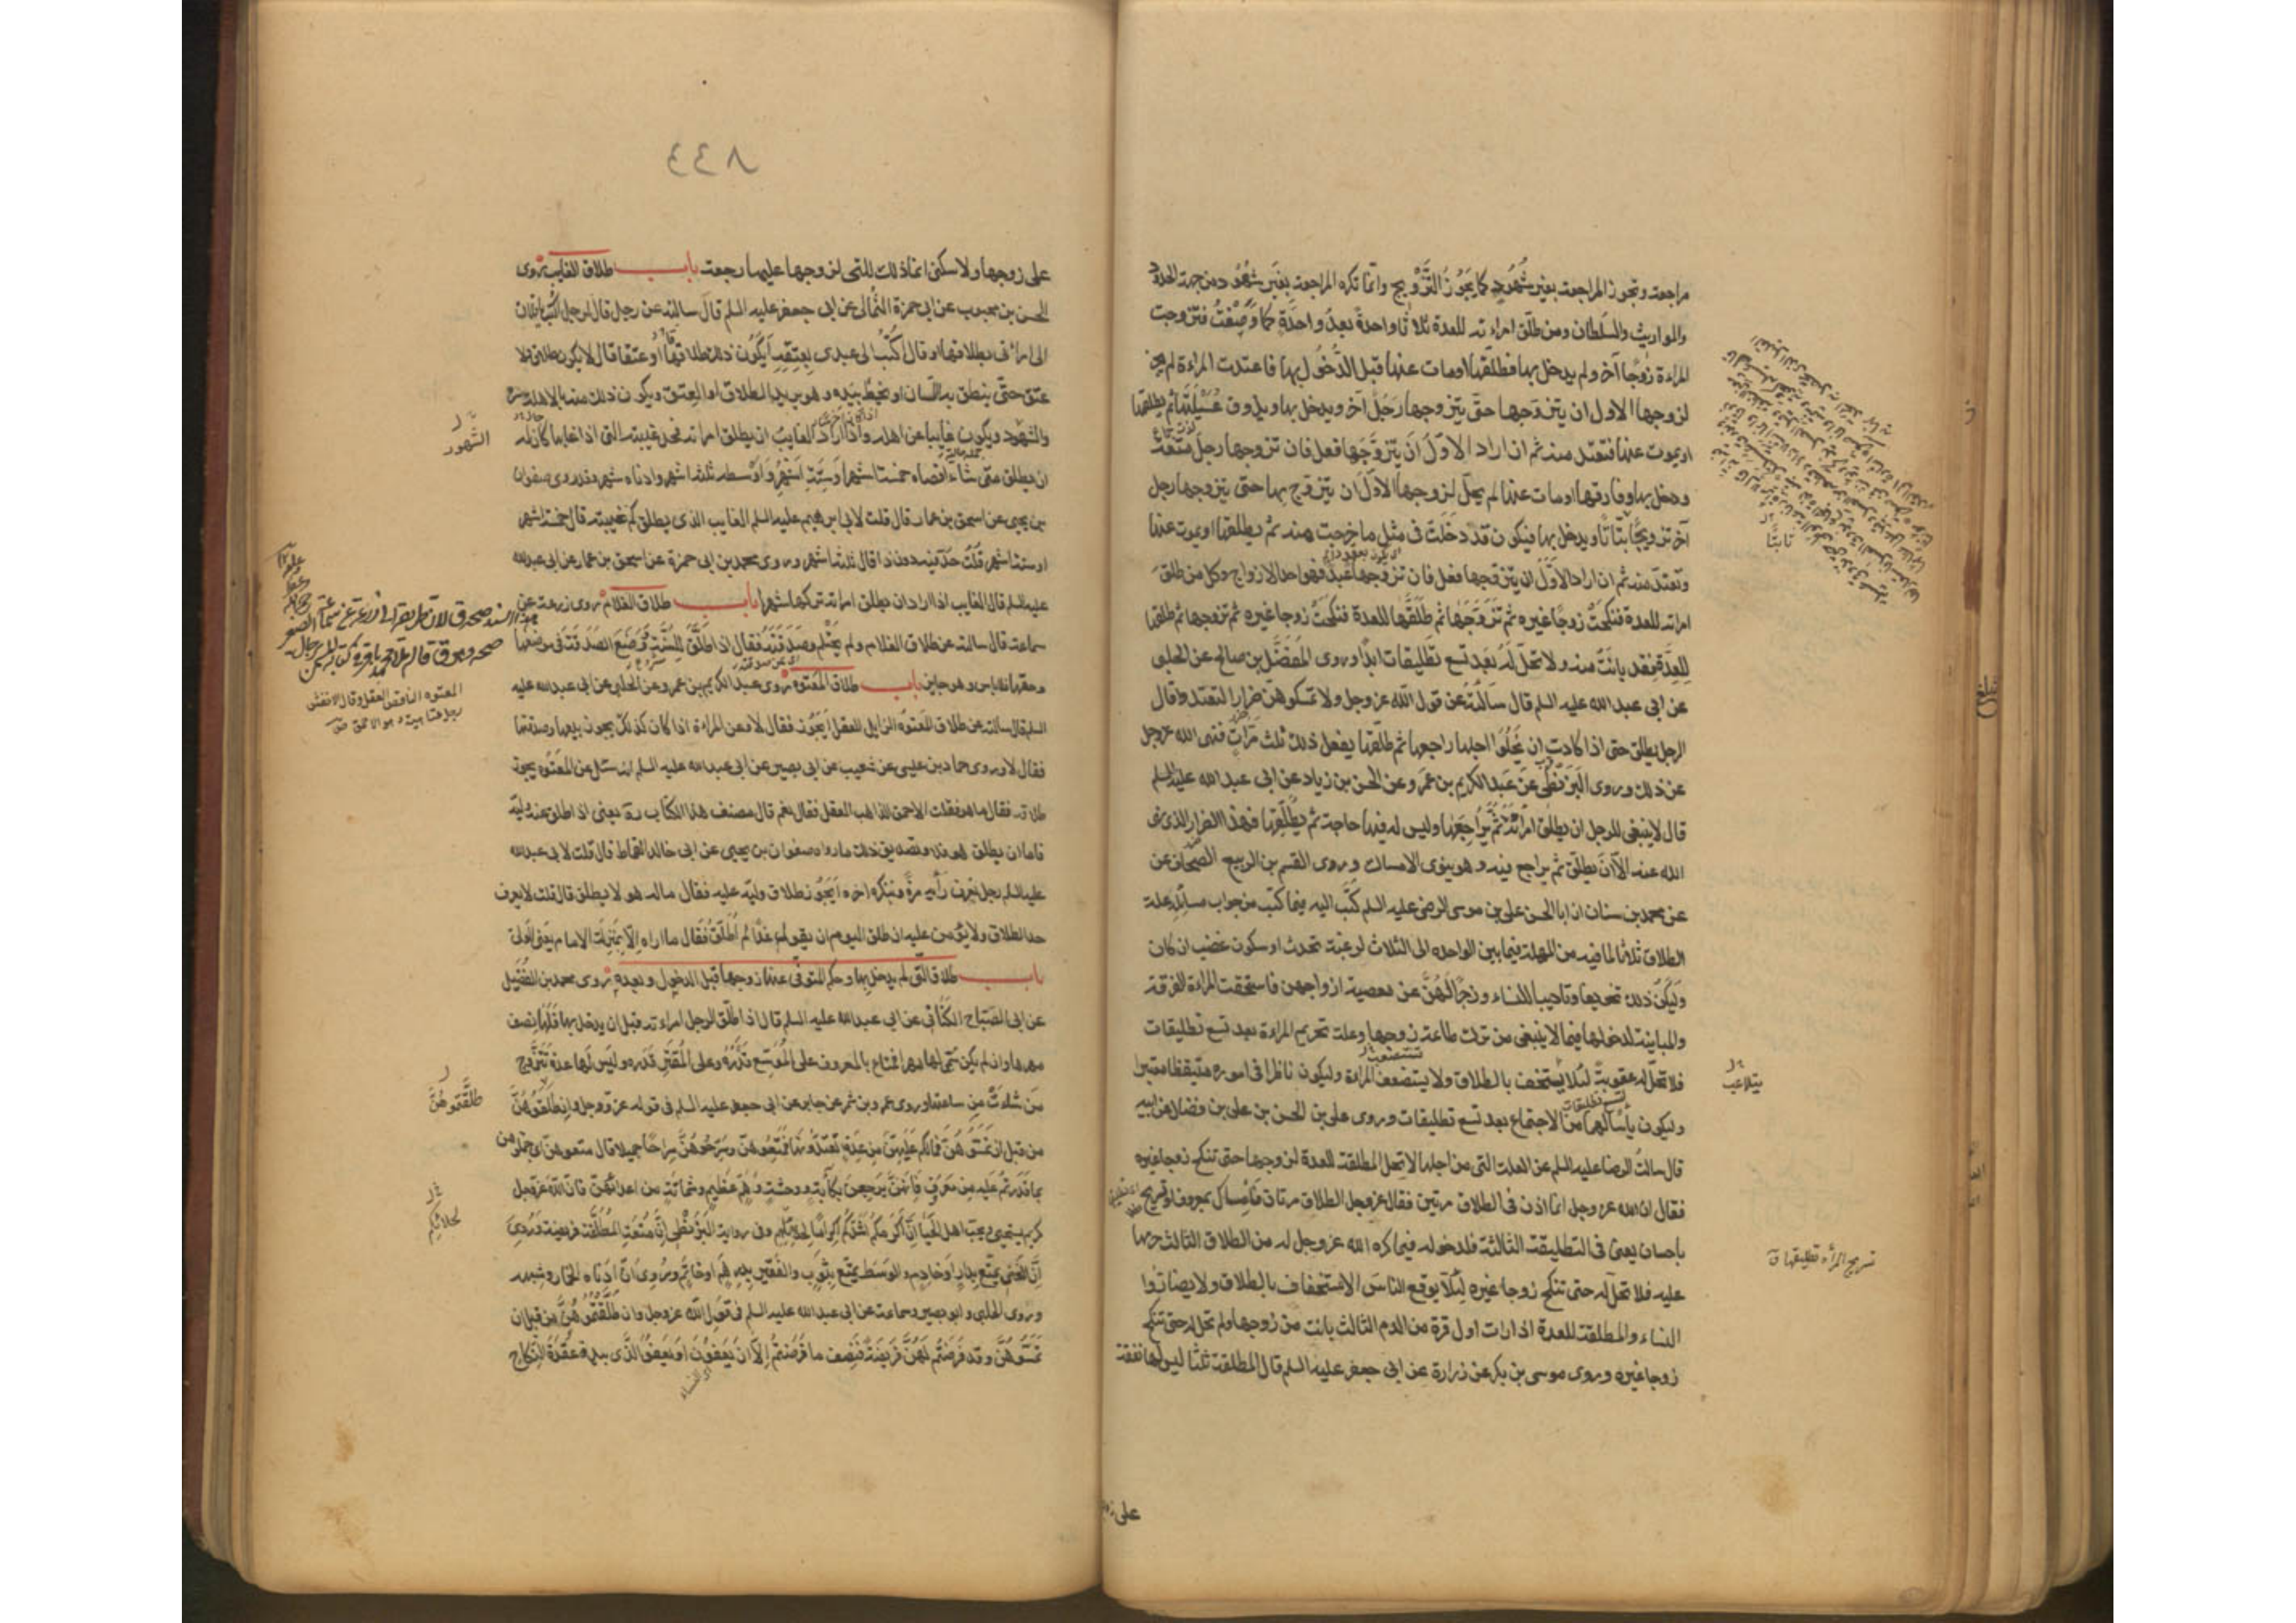 مراجعته وتجوز المراجعة بغير شهود كما يجوز التزويج وانما تكره المراجعة بغير شهود من جهة الحدود
والمواريث والسلطان ومن طلق امراءته للعدة ثلاثا واحدة بعد واحدة كما وصفت فتزوجت
المراءة زوجا آخر ولم يدخل بها فطلقها او مات عنها قبل الدخول بها فاعتدت المراءة لم يجز
لزوجها الاول ان يتزوجها حتى يتزوجها رجل آخر ويدخل بها ويذوق عسيلتها ثم يطلقها
او يموت عنها فتعتد منه ثم ان اراد الاول ان يتزوجها فعل فان تزوجها رجل متعة
ودخل بها وفارقها او مات عنها لم يحل لزوجها الاول ان يتزوج بها حتى يتزوجها رجل
آخر تزويجا بتاتا ويدخل بها فيكون قد دخلت في مثل ما خرجت منه ثم يطلقها او يموت عنها
وتعتد منه ثم ان اراد الاول ان يتزوجها فعل فان تزوجها عبد فهو احد الازواج وكل من طلق
امراته للعدة فنكحت زوجا غيره ثم تزوجها ثم طلقها للعدة فنكحت زوجا غيره ثم تزوجها ثم طلقها
للعدة فقد بانت منه ولا تحل له بعد تسع تطليقات ابدا وروى المفضل بن صالح عن الحلبى
عن ابى عبد الله عليه السلم قال سالته عن قول الله عز وجل ولا تمسكوهن ضرارا لتعتدوا قال
الرجل يطلق حتى اذا كادت ان يخلوا اجلها راجعها ثم طلقها يفعل ذلك ثلث مرات فنهى الله عز وجل
عن ذلك وروى البزنطى عن عبد الكريم بن عمر وعن الحسن بن زياد عن ابى عبد الله عليه السلم
قال لا ينبغى للرجل ان يطلق امراته ثم يراجعها وليس له فيها حاجة ثم يطلقها فهذا الضرار الذى نهى
الله عنه الا ان يطلق ثم يراجع فيه وهو ينوى الامساك وروى القسم بن الربيع الصحاف عن
عن محمد بن سنان ان ابا الحسن على بن موسى الرضى عليه السلم كتب اليه فيما كتب من جواب مسائله علة
الطلاق ثلاثا لما فيه من المهلة فيما بين الواحدة الى الثلاث لرغبة تحدث او سكون غضب ان كان
وليكن ذلك تخويفا وتاديبا للنساء وزجرا لهن عن معصية ازواجهن فاستحقت المراءة الفرقة
والمباينة لدخولها فيما لا ينبغى من ترك طاعة زوجها وعلة تحريم المراءة بعد تسع تطليقات
فلا تحل له عقوبة لئلا يستخف بالطلاق ولا يستضعف المراءة وليكون ناظرا في اموره متيقظا معتبرا
وليكون يأسا لهما من الاجتماع بعد تسع تطليقات وروى على بن الحسن بن على بن فضال عن ابيه
قال سالت الرضا عليه السلم عن العلة التى من اجلها لا تحل المطلقة للعدة لزوجها حتى تنكح زوجا غيره
فقال ان الله عز وجل انما اذن في الطلاق مرتين فقال عز وجل الطلاق مرتان فامساك بمعروف او تسريح
باحسان يعنى في التطليقة الثالثة فلدخوله فيما كره الله عز وجل له من الطلاق الثالث حرمها
عليه فلا تحل له حتى تنكح زوجا غيره لئلا يوقع الناس الاستخفاف بالطلاق ولا يضاروا
النساء والمطلقة للعدة اذا رات اول قرة من الدم الثالث بانت من زوجها ولم تحل له حتى تنكح
زوجا غيره وروى موسى بن بكر عن زرارة عن ابى جعفر عليه السلم قال المطلقة ثلثا ليس لها نفقة
تابتا
يتلاعب
تسريح المرأة تطليقها ق
على
٨٤٤
على زوجها ولا سكنى انما ذلك للتى لزوجها عليها رجعة باب طلاق الغايب روى
الحسن بن محبوب عن ابى حمزة الثمالى عن ابى جعفر عليه السلم قال سالته عن رجل قال لرجل اكتب يا فلان
الى امراتى بطلاقها او قال اكتب الى عبدى بعتقه ايكون ذلك طلاقا او عتقا قال لا يكون طلاق ولا
عتق حتى ينطق به اللسان او يخطه بيده وهو يريد الطلاق او العتق ويكون ذلك منه بالاهلة
والشهود ويكون غايبا عن اهله واذا اراد الغايب ان يطلق امراته فحد غيبته التى اذا غابها كان له
ان يطلق متى شاء اقصاه خمسة اشهر او ستة اشهر واوسطه ثلثة اشهر وادناه شهر وقد روى صفوان
بن يحيى عن اسحق بن عمار قال قلت لابى ابرهيم عليه السلم الغايب الذى يطلق كم غيبته قال خمسة اشهر
او ستة اشهر قلت حد فيه دون ذا قال ثلثة اشهر وروى محمد بن ابى حمزة عن اسحق بن عمار عن ابى عبد الله
عليه السلم قال الغايب اذا اراد ان يطلق امراته تركها شهرا باب طلاق الغلام روى زرعة عن
سماعة قال سالته عن طلاق الغلام ولم يحتلم وصدقته فقال اذا طلق للسنة ووضع الصدقة في موضعها
وحقها فلا باس وهو جايز باب طلاق المعتوه روى عبد الكريم بن عمر وعن الحلبى عن ابى عبد الله عليه
السلم قال سالته عن طلاق المعتوه الزايل العقل ايجوز فقال لا وعن المراءة اذا كان كذلك يجوز بيعها وصدقتها
فقال لا وروى حماد بن عيسى عن شعيب عن ابى بصير عن ابى عبد الله عليه السلم انه سئل عن المعتوه يجوز
طلاقه فقال ما هو فقلت الاحمق الذاهب العقل فقال نعم قال مصنف هذا الكتاب ره يعنى اذا طلق عنه وليه
فاما ان يطلق هو فلا وتصديق ذلك ما رواه صفوان بن يحيى عن ابى خالد القماط قال قلت لابى عبد الله
عليه السلم رجل يعرف رأيه مرة وينكره اخرى ايجوز طلاق وليه عليه فقال ماله هو لا يطلق قال قلت لا يعرف
حد الطلاق ولا يؤمن عليه ان طلق اليوم ان يقول غدا لم اطلق فقال ما اراه الا بمنزلة الامام يعنى الولى
باب طلاق التى لم يدخل بها وحكم المتوفى عنها زوجها قبل الدخول وبعده روى محمد بن الفضيل
عن ابى الصباح الكنانى عن ابى عبد الله عليه السلم قال اذا طلق الرجل امراءته قبل ان يدخل بها فلها نصف
مهرها وان لم يكن سمى لها مهرا فمتاع بالمعروف على الموسع قدره وعلى المقتر قدره وليس لها عدة تتزوج
من شاءت من ساعتها وروى عمرو بن شمر عن جابر عن ابى جعفر عليه السلم في قوله عز وجل وان طلقتموهن
من قبل ان تمسوهن فما لكم عليهن من عدة تعتدونها فمتعوهن وسرحوهن سراحا جميلا قال متعوهن اى جملوهن
بما قدرتم عليه من معروف فانهن يرجعن بكآبة ووحشة وهم عظيم وشماتة من اعدائهن فان الله عز وجل
كريم يستحيى ويحب اهل الحياء ان اكرمكم اشدكم اكراما لحلائلهم وفى رواية البزنطى ان متعة المطلقة فريضة وروى
ان الغنى يمتع بدار او خادم والوسط يمتع بثوب والفقير بدرهم او خاتم وروى ان ادناه الخمار وشبهه
وروى الحلبى وابو بصير وسماعة عن ابى عبد الله عليه السلم في قول الله عز وجل وان طلقتموهن من قبل ان
تمسوهن وقد فرضتم لهن فريضة فنصف ما فرضتم الا ان يعفون او يعفوا الذى بيده عقدة النكاح
الشهور
المعتوه الناقص العقل وقال الاخفش
طلقتموهن
لحلائلكم